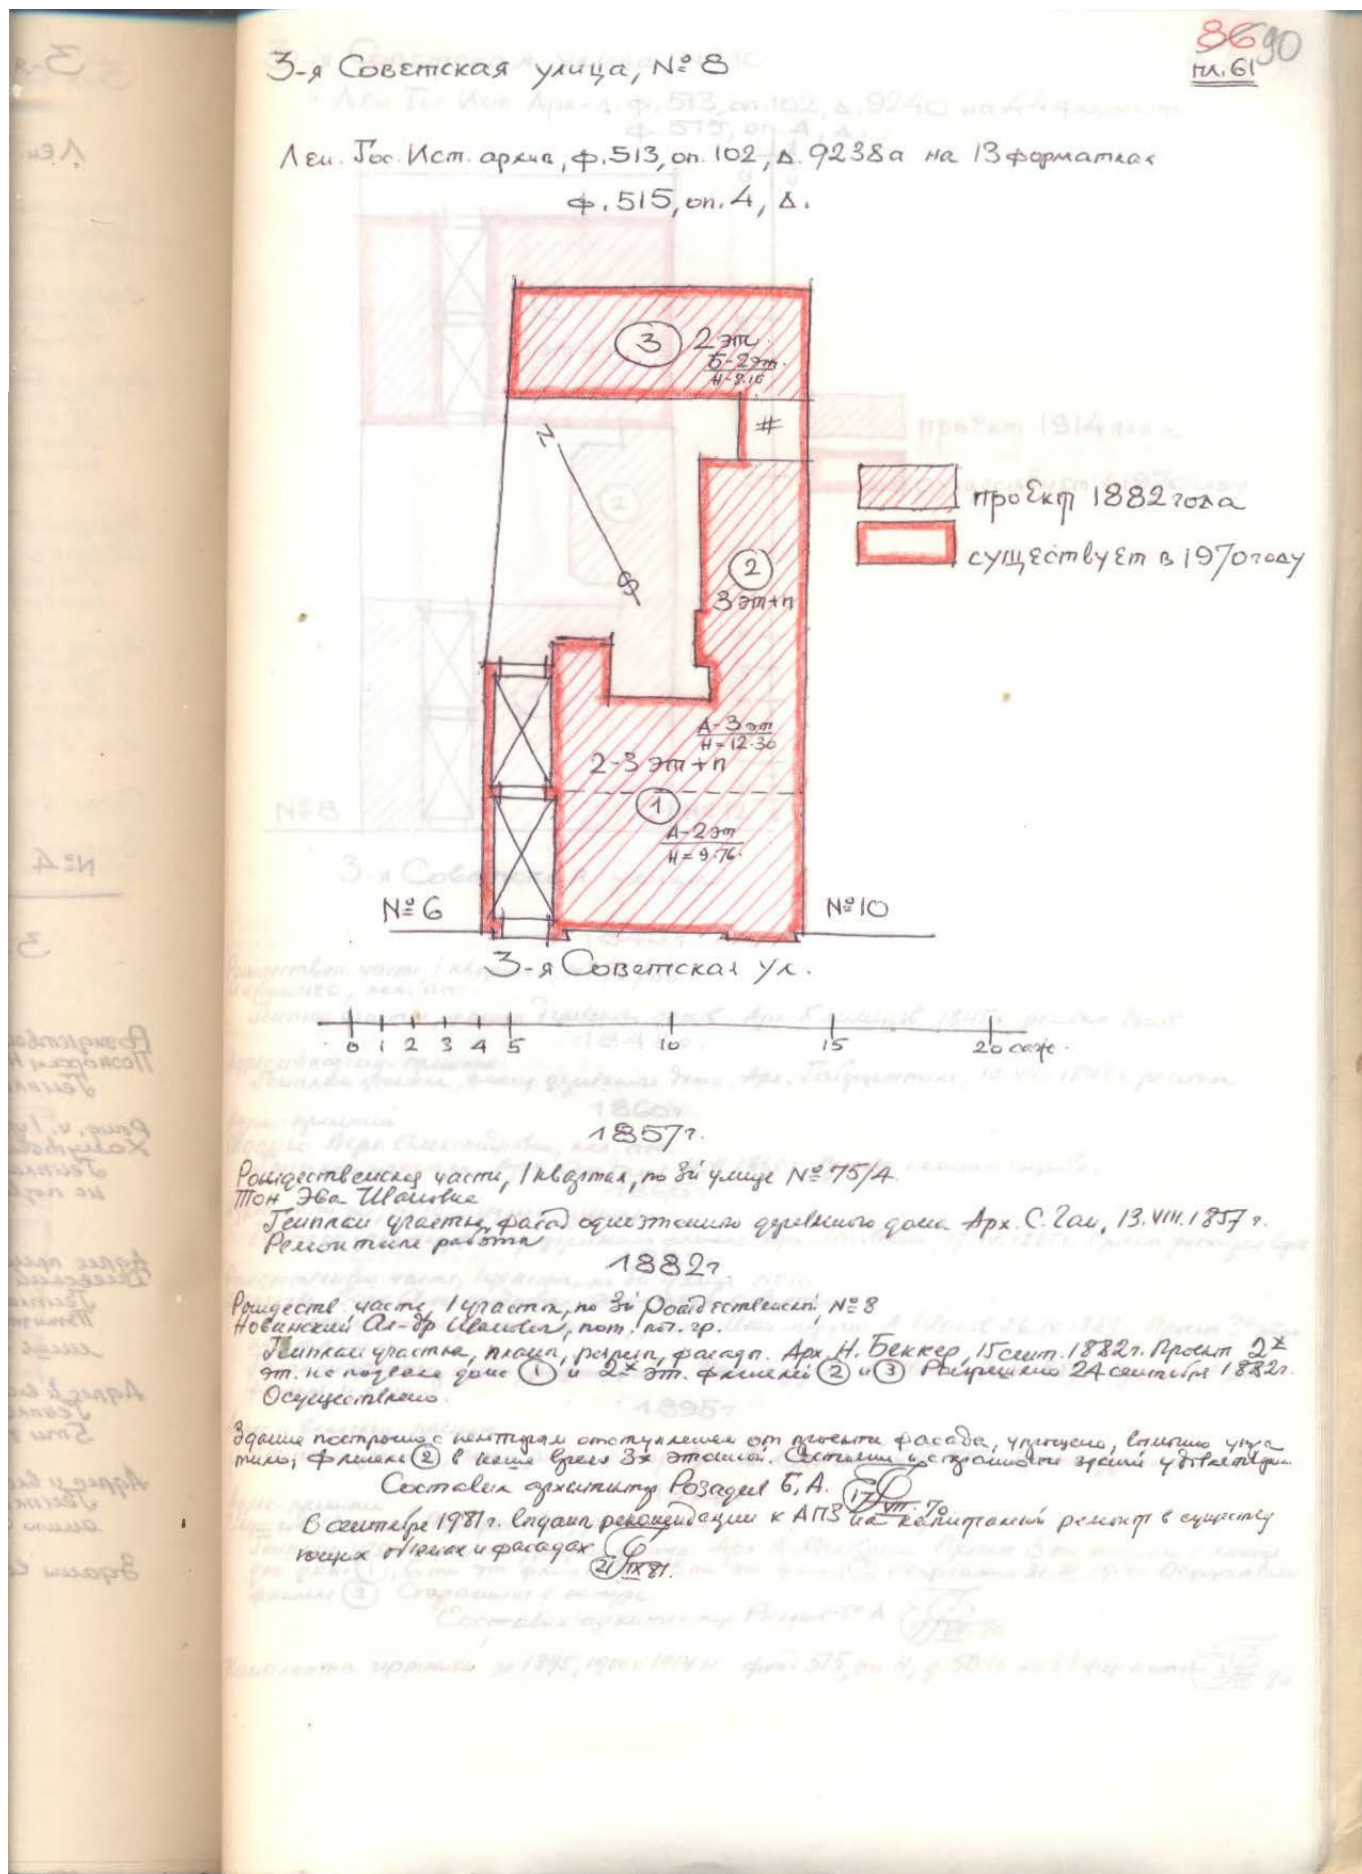 86 90
пл. 61
3-я Советская улица, № 8
Лен. Гос. Ист. архив, ф. 513, оп. 102, д. 9238а на 13 форматках
ф. 515, оп. 4, д.
3 2 эт.
Б-2эт.
#
N
S
проект 1882 года
существует в 1970 году
2
3 эт+п
А-3 эт
H=12.30
2-3 эт+п
1
А-2 эт
H=9.76
№ 6
№ 10
3-я Советская ул.
0 1 2 3 4 5 10 15 20 саж.
1857 г.
Рождественская часть, 1 квартал, по 3й улице № 75/А
Тон Эва
Генплан участка, фасад одноэтажного деревянного дома Арх. С. Ган, 13.VIII.1857 г.
Ремонтные работы
1882 г
Рождеств. часть, 1 участок, по 3й Рождественской, № 8
Нованский Ал-др Иванович, пот. поч. гр.
Генплан участка, планы, разрезы, фасады. Арх. Н. Беккер, 15 сент. 1882 г. Проект 2х
эт. на подвале дома 1 и 2х эт. флигелей 2 и 3 Разрешено 24 сентября 1882 г.
Осуществлено.
Здание построено с некоторым отступлением от проекта фасада, упрощено,
флигель 2 в наше время 3х этажный. Состояние и сохранность здания
Составил архитектор Розадеев Б. А. 17 VII. 70
В сентябре 1981 г. выданы рекомендации к АПЗ на капитальный ремонт в существу
ющих объемах и фасадах 21 IX 81.